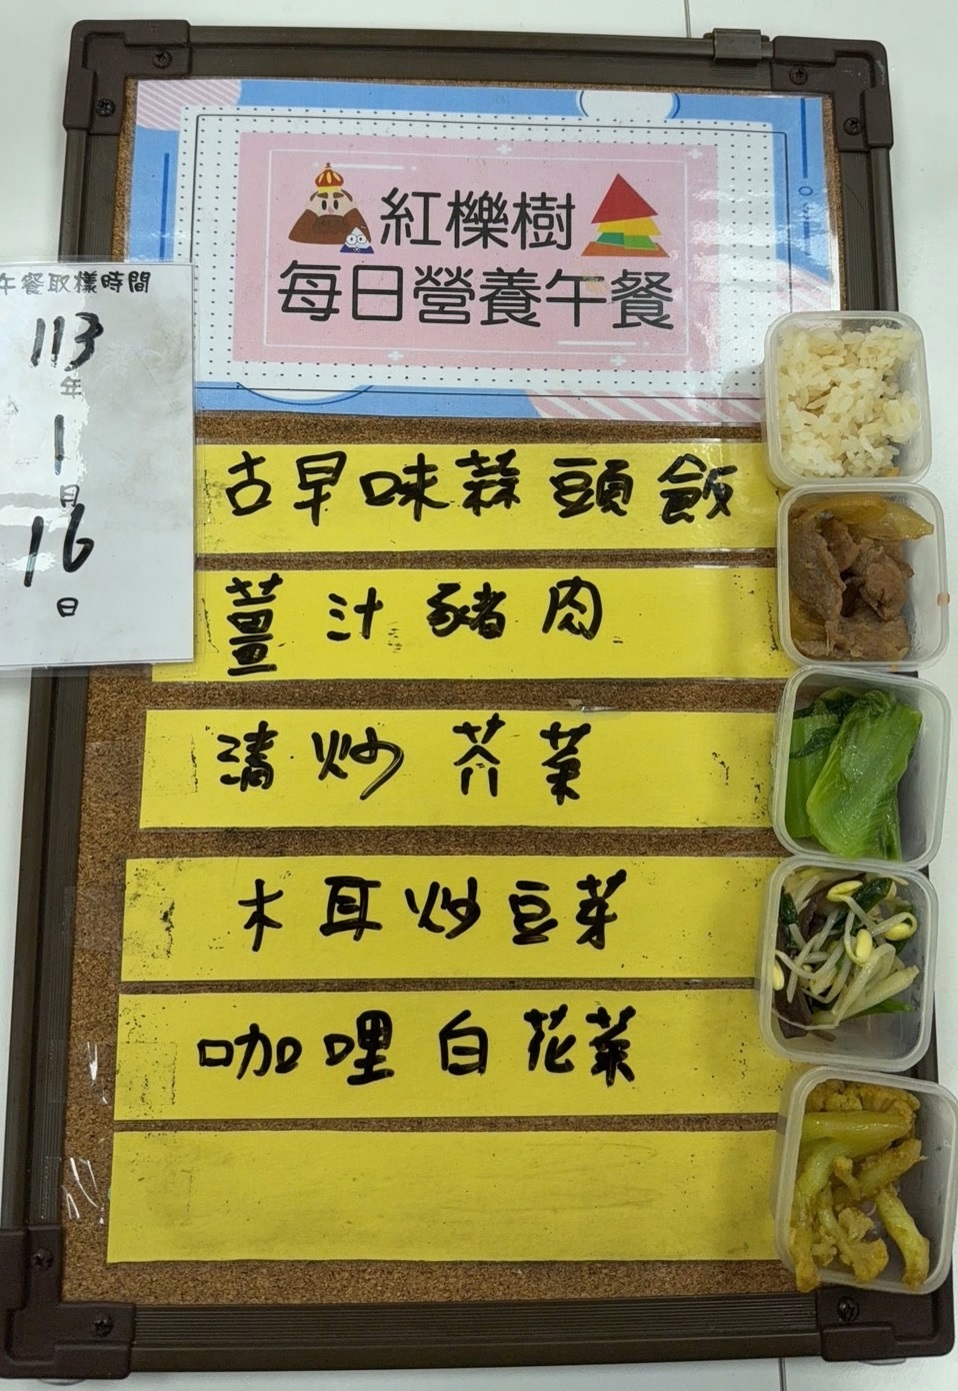 紅櫟樹
每日營養午餐
午餐取樣時間
113
年
1
月
16
日
古早味蒜頭飯
薑汁豬肉
清炒芥菜
木耳炒豆芽
咖哩白花菜